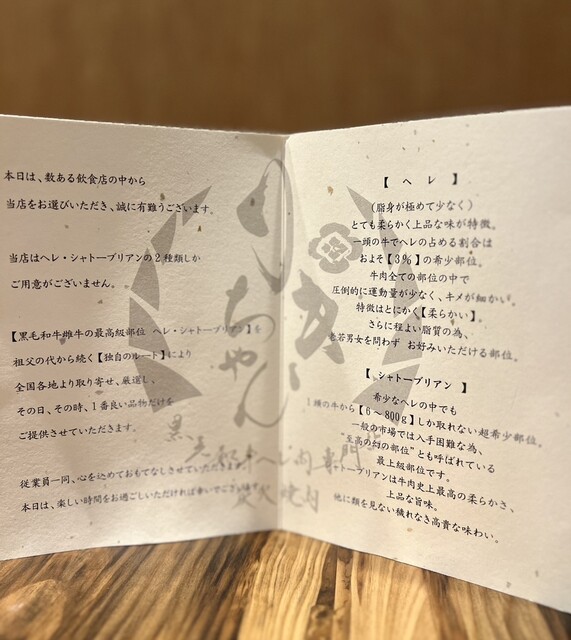 本日は、数ある飲食店の中から
当店をお選びいただき、誠に有難うございます。
当店はヘレ・シャトーブリアンの2種類しか
ご用意がございません。
【黒毛和牛雌牛の最高級部位 ヘレ・シャトーブリアン】を
祖父の代から続く【独自のルート】により
全国各地より取り寄せ、厳選し、
その日、その時、1番良い品物だけを
ご提供させていただきます。
従業員一同、心を込めておもてなしさせていただきます。
本日は、楽しい時間をお過ごしいただければ幸いでございます。
【 ヘ レ 】
(脂身が極めて少なく)
とても柔らかく上品な味が特徴。
一頭の牛でヘレの占める割合は
およそ【3%】の希少部位。
牛肉全ての部位の中で
圧倒的に運動量が少なく、キメが細かい。
特徴はとにかく【柔らかい】。
さらに程よい脂質の為、
老若男女を問わず お好みいただける部位。
【 シャトーブリアン 】
希少なヘレの中でも
1頭の牛から【6〜800g】しか取れない超希少部位。
一般の市場では入手困難な為、
"至高の幻の部位"とも呼ばれている
最上級部位です。
シャトーブリアンは牛肉史上最高の柔らかさ、
上品な旨味。
他に類を見ない穢れなき高貴な味わい。
ちゃん
専門
炭火焼肉